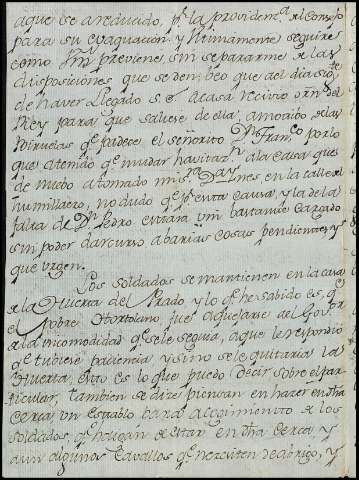 aque se a reducido, pr. la providema. del Consejo
para su evaquacion. y Ultimamente seguire
como Vm. previene, sin separarme de las
disposiciones que se den; veo que al dia sigte.
de haver llegado S. E. a casa recivio orn. del
Rey para que saliese de ella, a motibo de las
Viruelas qe. padece el señorito Dn. Franco. por lo
que atenido qe. mudar havitan. a la casa que
de nuebo a tomado mi Sra. D. Ynes en la calle del
humilladero, no dudo qe. pr. esta causa, y la de la
falta de Dn. Pedro estara Vm. bastante cargado
sin poder dar curso a barias cosas pendientes y
que urgen.
Los soldados se mantienen en la casa
de la Huerta del Prado, y lo qe. he sabido es, qe.
el pobre Hortolano fue a quejarse al Gover.
de la incomodidad qe. se le seguia, a que le respondio
qe. tubiese paciencia y sino se le quitaria la
Huerta, esto es lo que puedo decir sobre el par-
ticular, tambien se dize piensan en hazer en dha
cerca, un Establo para acogimiento de los
soldados, qe. haigan de estar en dha cerca, y
aun algunos cavallos qe. necesiten de abrigo, y